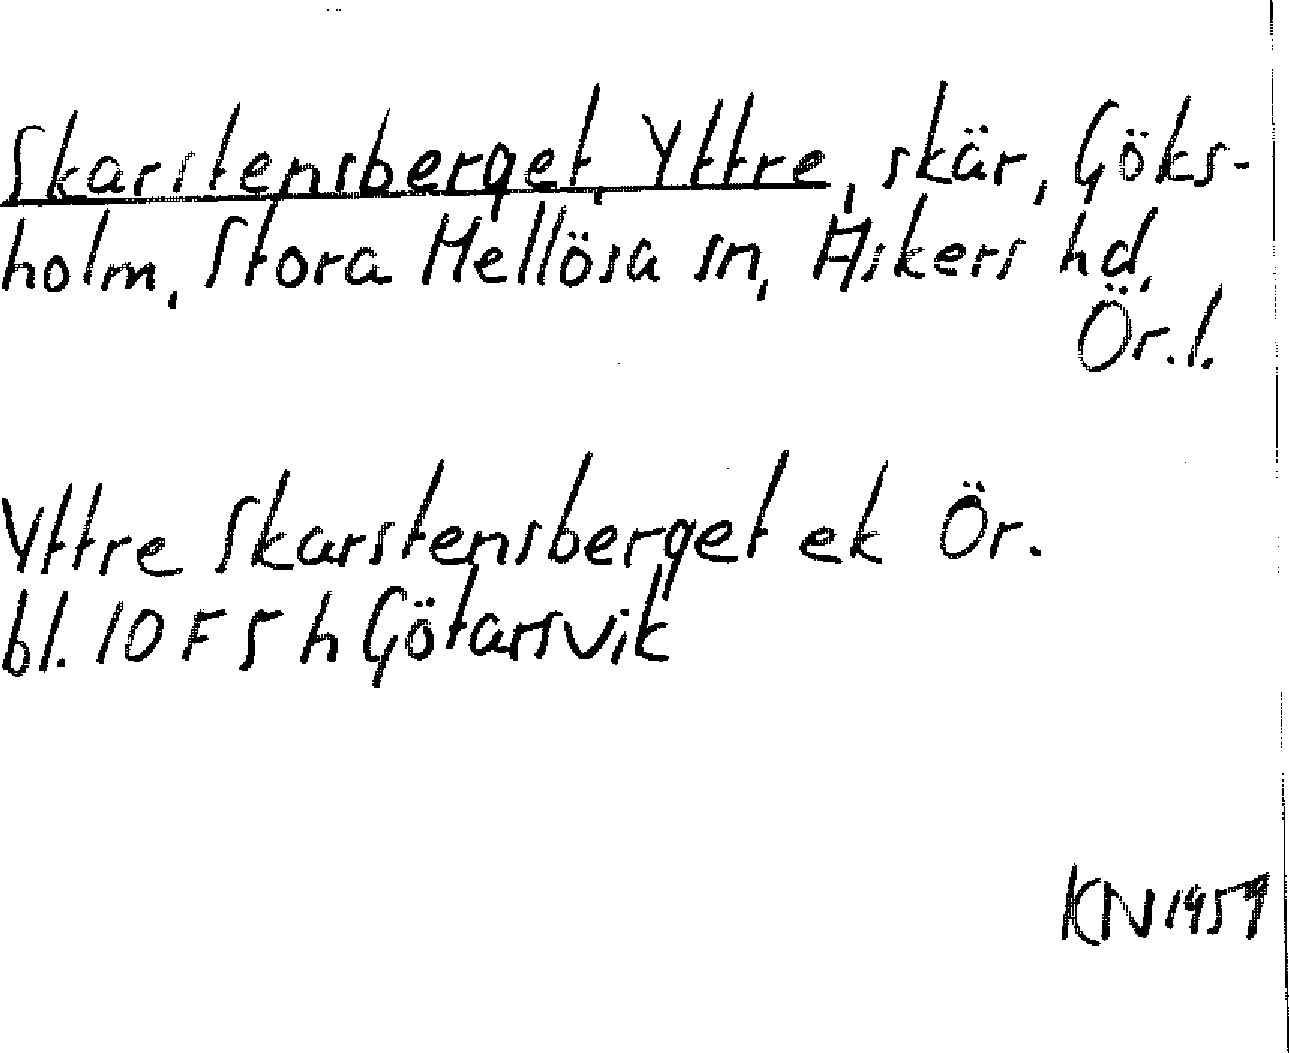 Skarstensberget, Yttre, skär, Göks-
holm, Stora Mellösa sn, Askers hd,
Ör. l.
Yttre Skarstensberget ek Ör.
bl. 10 F 5 h Götarsvik
KN 1959